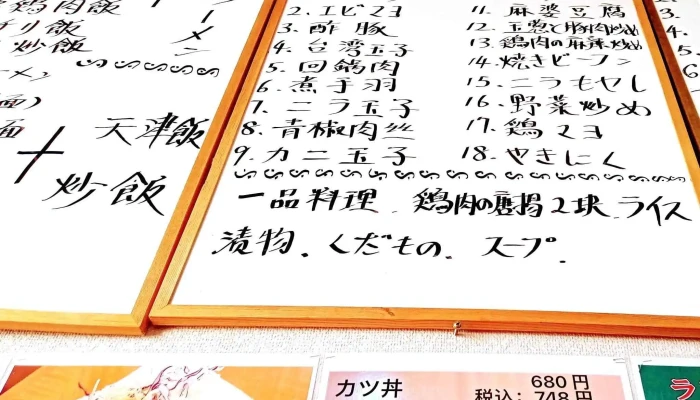 鶏肉飯
炒飯
天津飯
+
炒飯
2. エビマヨ
3. 酢豚
4. 台湾玉子
5. 回鍋肉
6. 煮手羽
7. ニラ玉子
8. 青椒肉丝
9. カニ玉子
11. 麻婆豆腐
12. 玉葱と豚肉炒め
13. 鶏肉の麻辣炒め
14. 焼きビーフン
15. ニラモヤし
16. 野菜炒め
17. 鶏マヨ
18. やきにく
一品料理、鶏肉の唐揚2块、ライス
漬物、くだもの、スープ.
カツ丼
680円
税込:748円
ラ